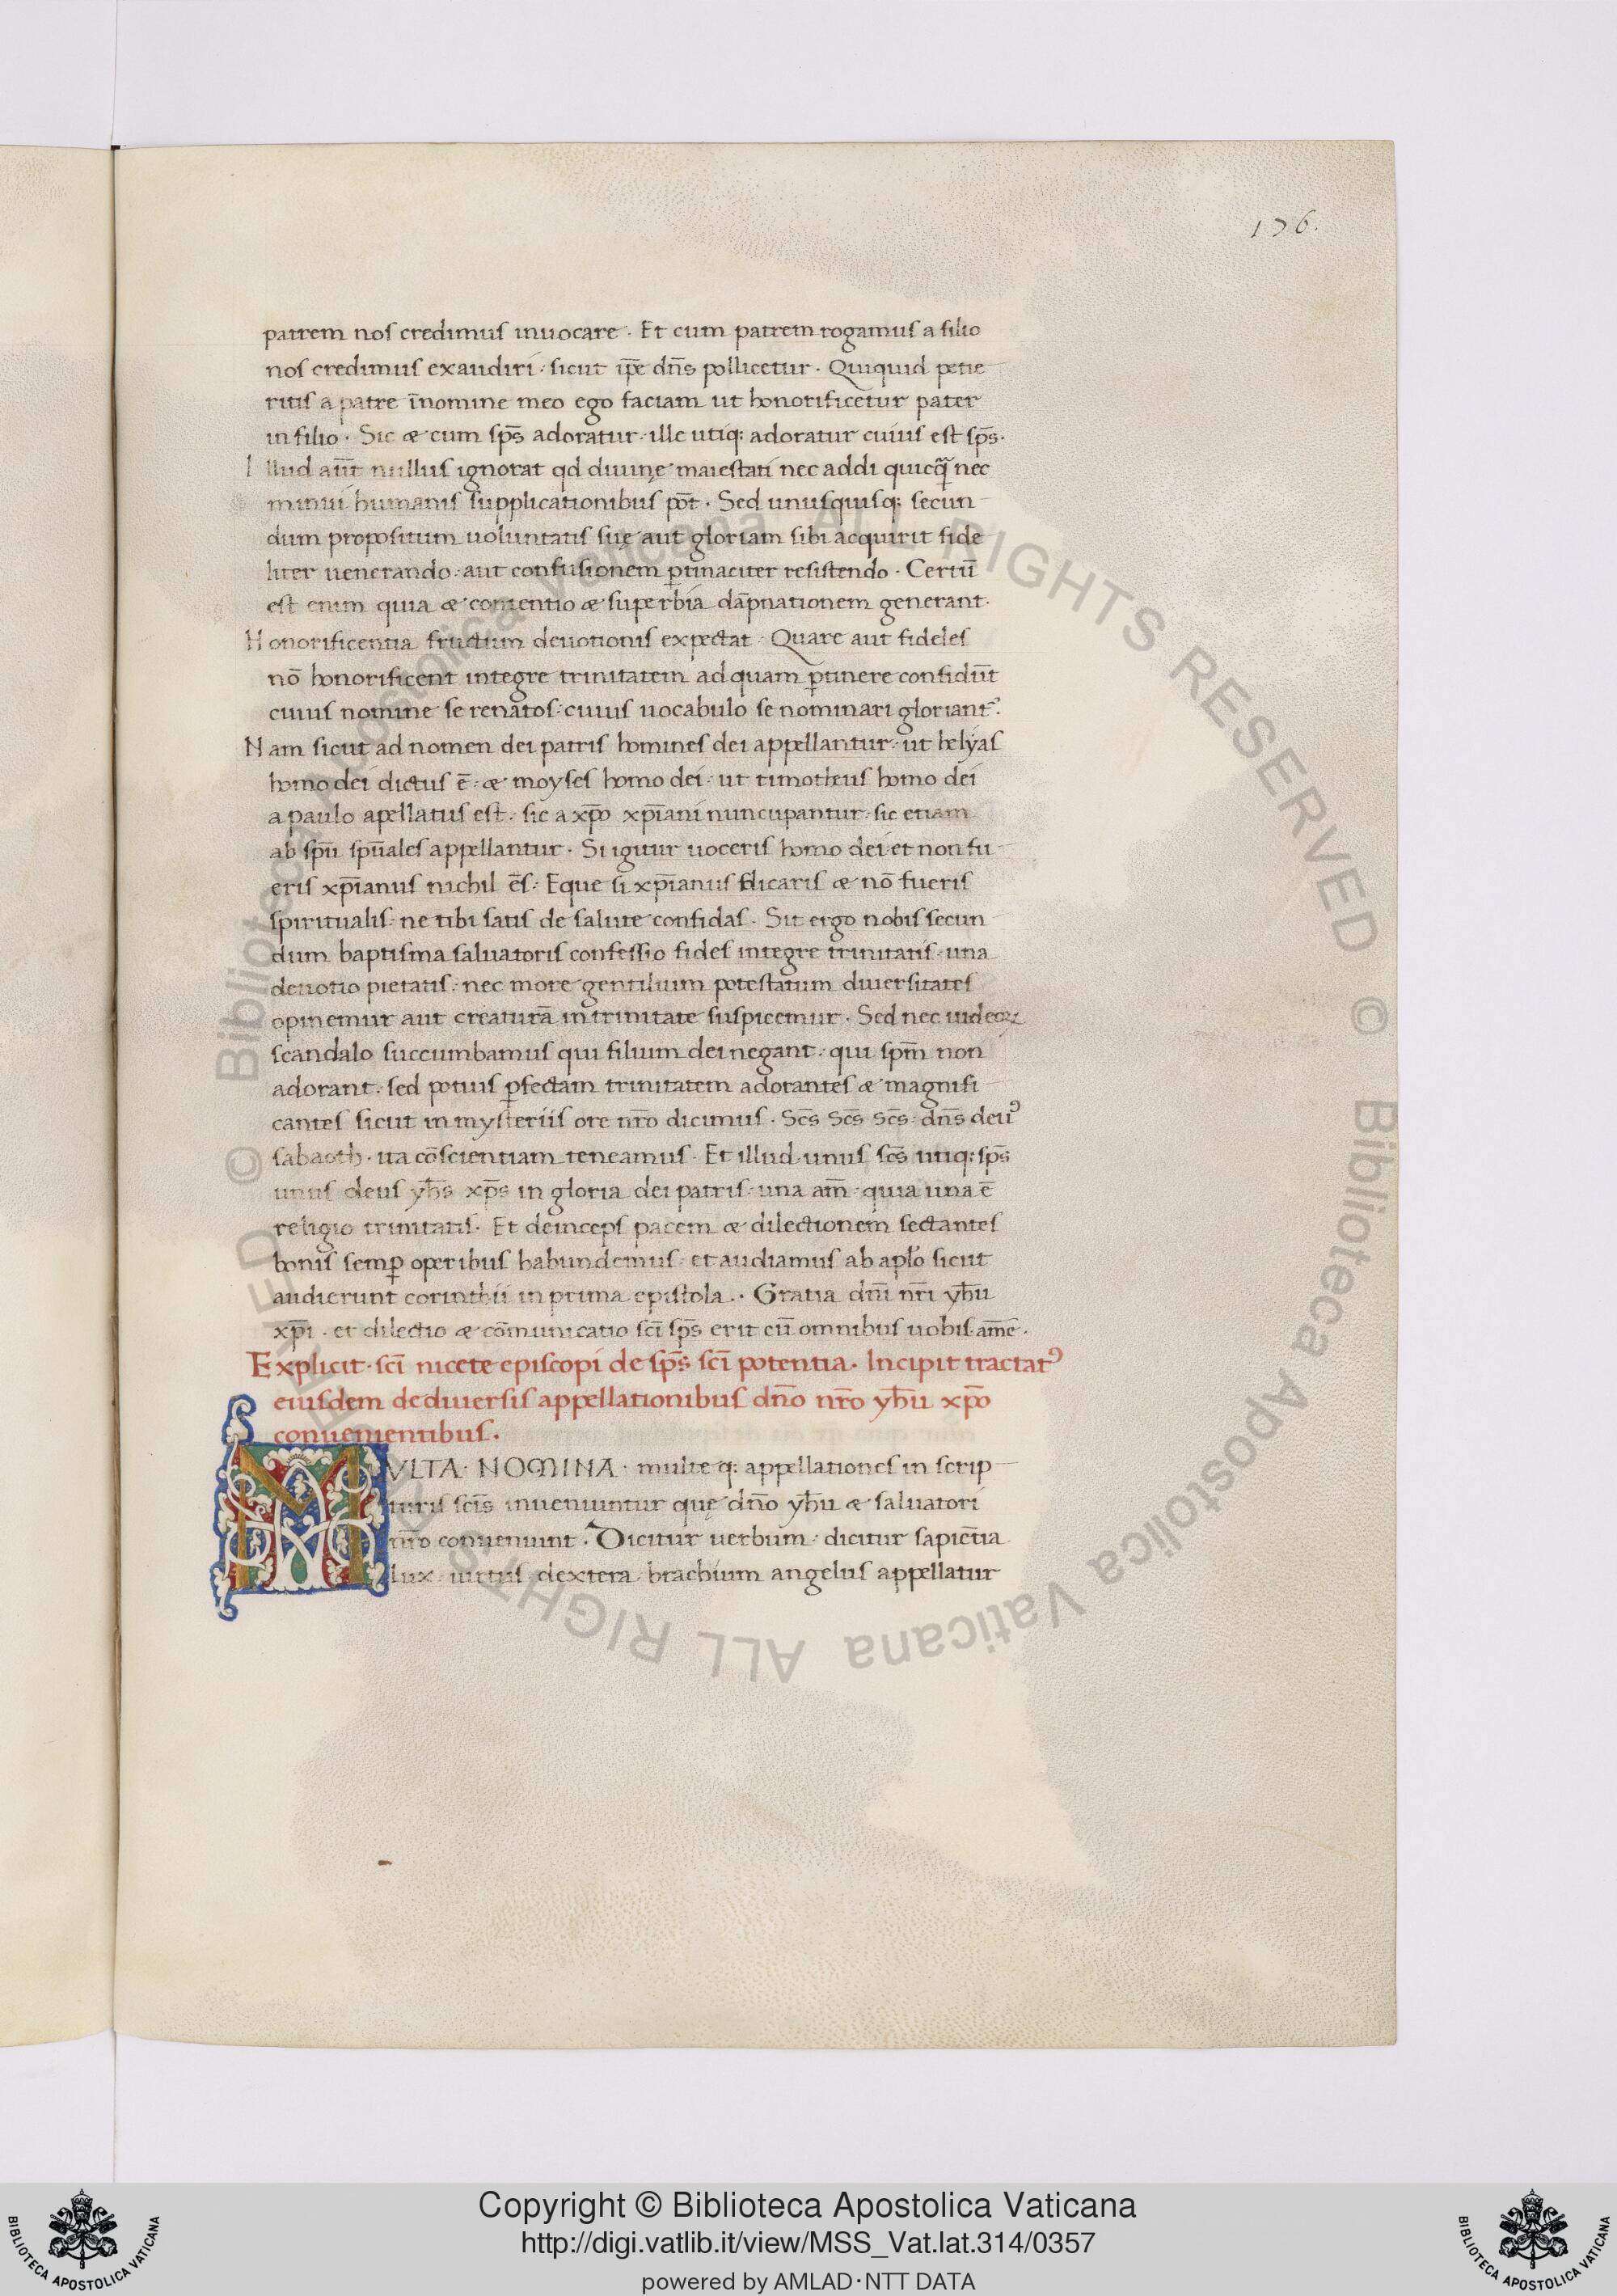 176.
patrem nos credimus inuocare . Et cum patrem rogamus a filio
nos credimus exaudiri . sicut ip̄e dn̄s pollicetur . Quiquid petie
ritis a patre īnomine meo ego faciam ut honorificetur pater
in filio . Sic æ cum sp̄s adoratur . ille utiq; adoratur cuius est sp̄s .
Illud aūt nullus ignorat qd diuinę maiestati nec addi quicq̄ nec
minui humanis supplicationibus pōt . Sed unusquisq; secun
dum propositum uoluntatis suę aut gloriam sibi acquirit fide
liter uenerando . aut confusionem ꝑtinaciter resistendo . Certū
est enim quia æ contentio æ superbia dāpnationem generant .
Honorificentia fructum deuotionis expectat . Quare aut fideles
nō honorificent integre trinitatem ad quam ꝑtinere confidūt
cuius nomine se renatos . cuius uocabulo se nominari gloriantᵘ .
Nam sicut ad nomen dei patris homines dei appellantur . ut helyas
homo dei dictus ē . æ moyses homo dei . ut timotheus homo dei
a paulo apellatus est . sic a xp̄o xp̄iani nuncupantur . sic etiam
ab spū spūales appellantur . Si igitur uoceris homo dei et non fu
eris xp̄ianus nichil ēs . Eque si xp̄ianus dicaris æ nō fueris
spiritualis . ne tibi satis de salute confidas . Sit ergo nobis secun
dum baptisma saluatoris confessio fides integre trinitatis . una
deuotio pietatis . nec more gentilium potestatum diuersitates
opinemur aut creaturā in trinitate suspicemur . Sed nec iudeoꝝ
scandalo succumbamus qui filium dei negant . qui spm̄ non
adorant . sed potius ꝑfectam trinitatem adorantes æ magnifi
cantes sicut in mysteriis ore nr̄o dicimus . Sc̄s Sc̄s Sc̄s . dn̄s deuꝰ
sabaoth . ita cōscientiam teneamus . Et illud . unus sc̄s utiq; sp̄s
unus deus yh̄s xp̄s in gloria dei patris . una am̄ . quia una ē
religio trinitatis . Et deinceps pacem æ dilectionem sectantes
bonis semꝑ operibus habundemus . et audiamus ab apl̄o sicut
audierunt corinthii in prima epistola . . Gratia dn̄i nr̄i yh̄u
xp̄i . et dilectio æ cōmunicatio sc̄i sp̄s erit cū omnibus uobis . amē .
Explicit . sc̄i nicete episcopi de sp̄s sc̄i potentia . Incipit tractatꝰ
eiusdem de diuersis appellationibus dn̄o nr̄o yh̄u xp̄o
conuenientibus .
MVLTA . NOMINA . multe q; appellationes in scrip
turis sc̄is inueniuntur quę dn̄o yh̄u æ saluatori
nr̄o conueniunt . Dicitur uerbum . dicitur sapiētia
lux . uirtus . dextera . brachium angelus appellatur
© Biblioteca Apostolica Vaticana ALL RIGHTS RESERVED
© Biblioteca Apostolica Vaticana ALL RIGHTS RESERVED
Copyright © Biblioteca Apostolica Vaticana
http://digi.vatlib.it/view/MSS_Vat.lat.314/0357
powered by AMLAD·NTT DATA
BIBLIOTECA APOSTOLICA VATICANA
BIBLIOTECA APOSTOLICA VATICANA